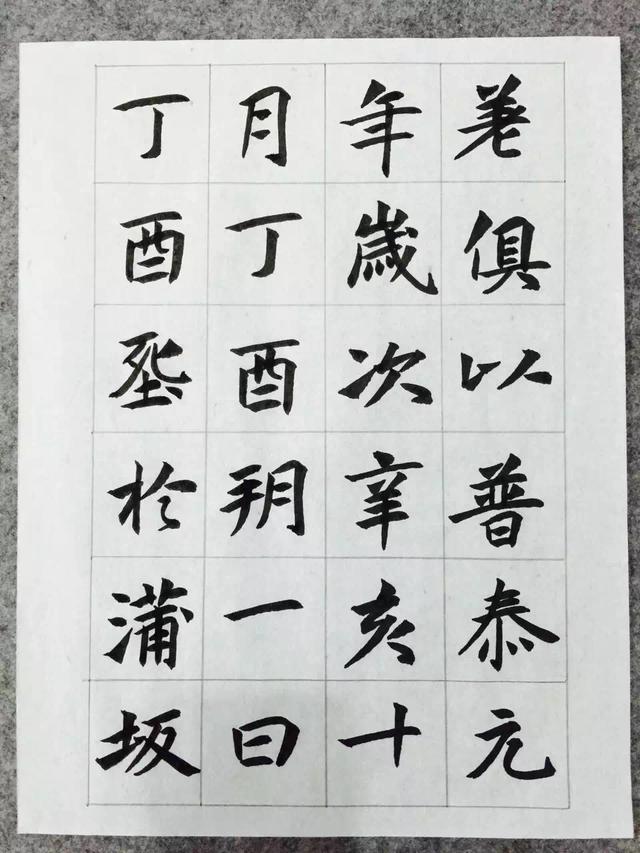 差俱以普泰元
年歲次辛亥十
月丁酉朔一日
丁酉葬於蒲坂